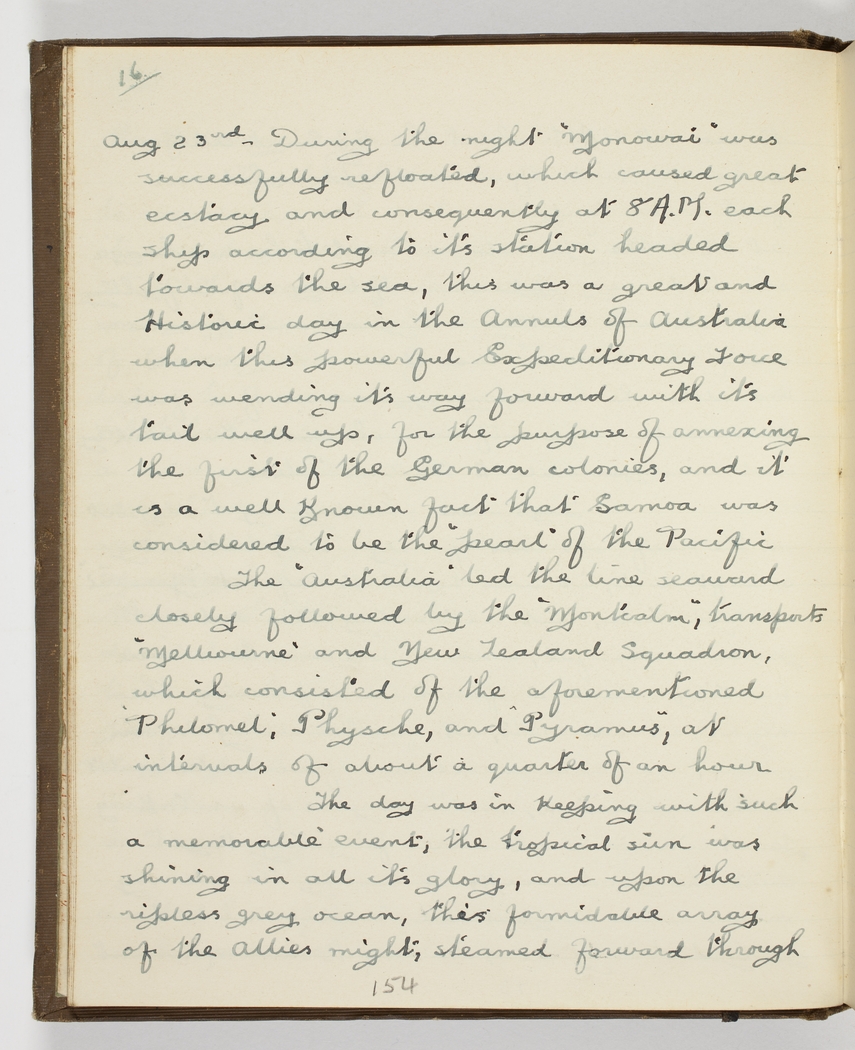 16.
Aug 23rd - During the night "Monowai" was
successfully refloated, which caused great
ecstacy and consequently at 8 A.M. each
ship according to it's station headed
towards the sea, this was a great and
Historic day in the Annuls of Australia
when this powerful Expeditionary Force
was wending it's way forward with it's
tail well up, for the purpose of annexing
the first of the German colonies, and it
is a well Known fact that Samoa was
considered to be the "pearl" of the Pacific
The "Australia" led the line seaward
closely followed by the "Montcalm", transports
"Melbourne" and New Zealand Squadron,
which consisted of the aforementioned
"Philomel", Physche, and "Pyramus", at
intervals of about a quarter of an hour
The day was in Keeping with such
a memorable event, the tropical sun was
shining in all it's glory, and upon the
ripless grey ocean, this formidable array
of the Allies might, steamed forward through
154